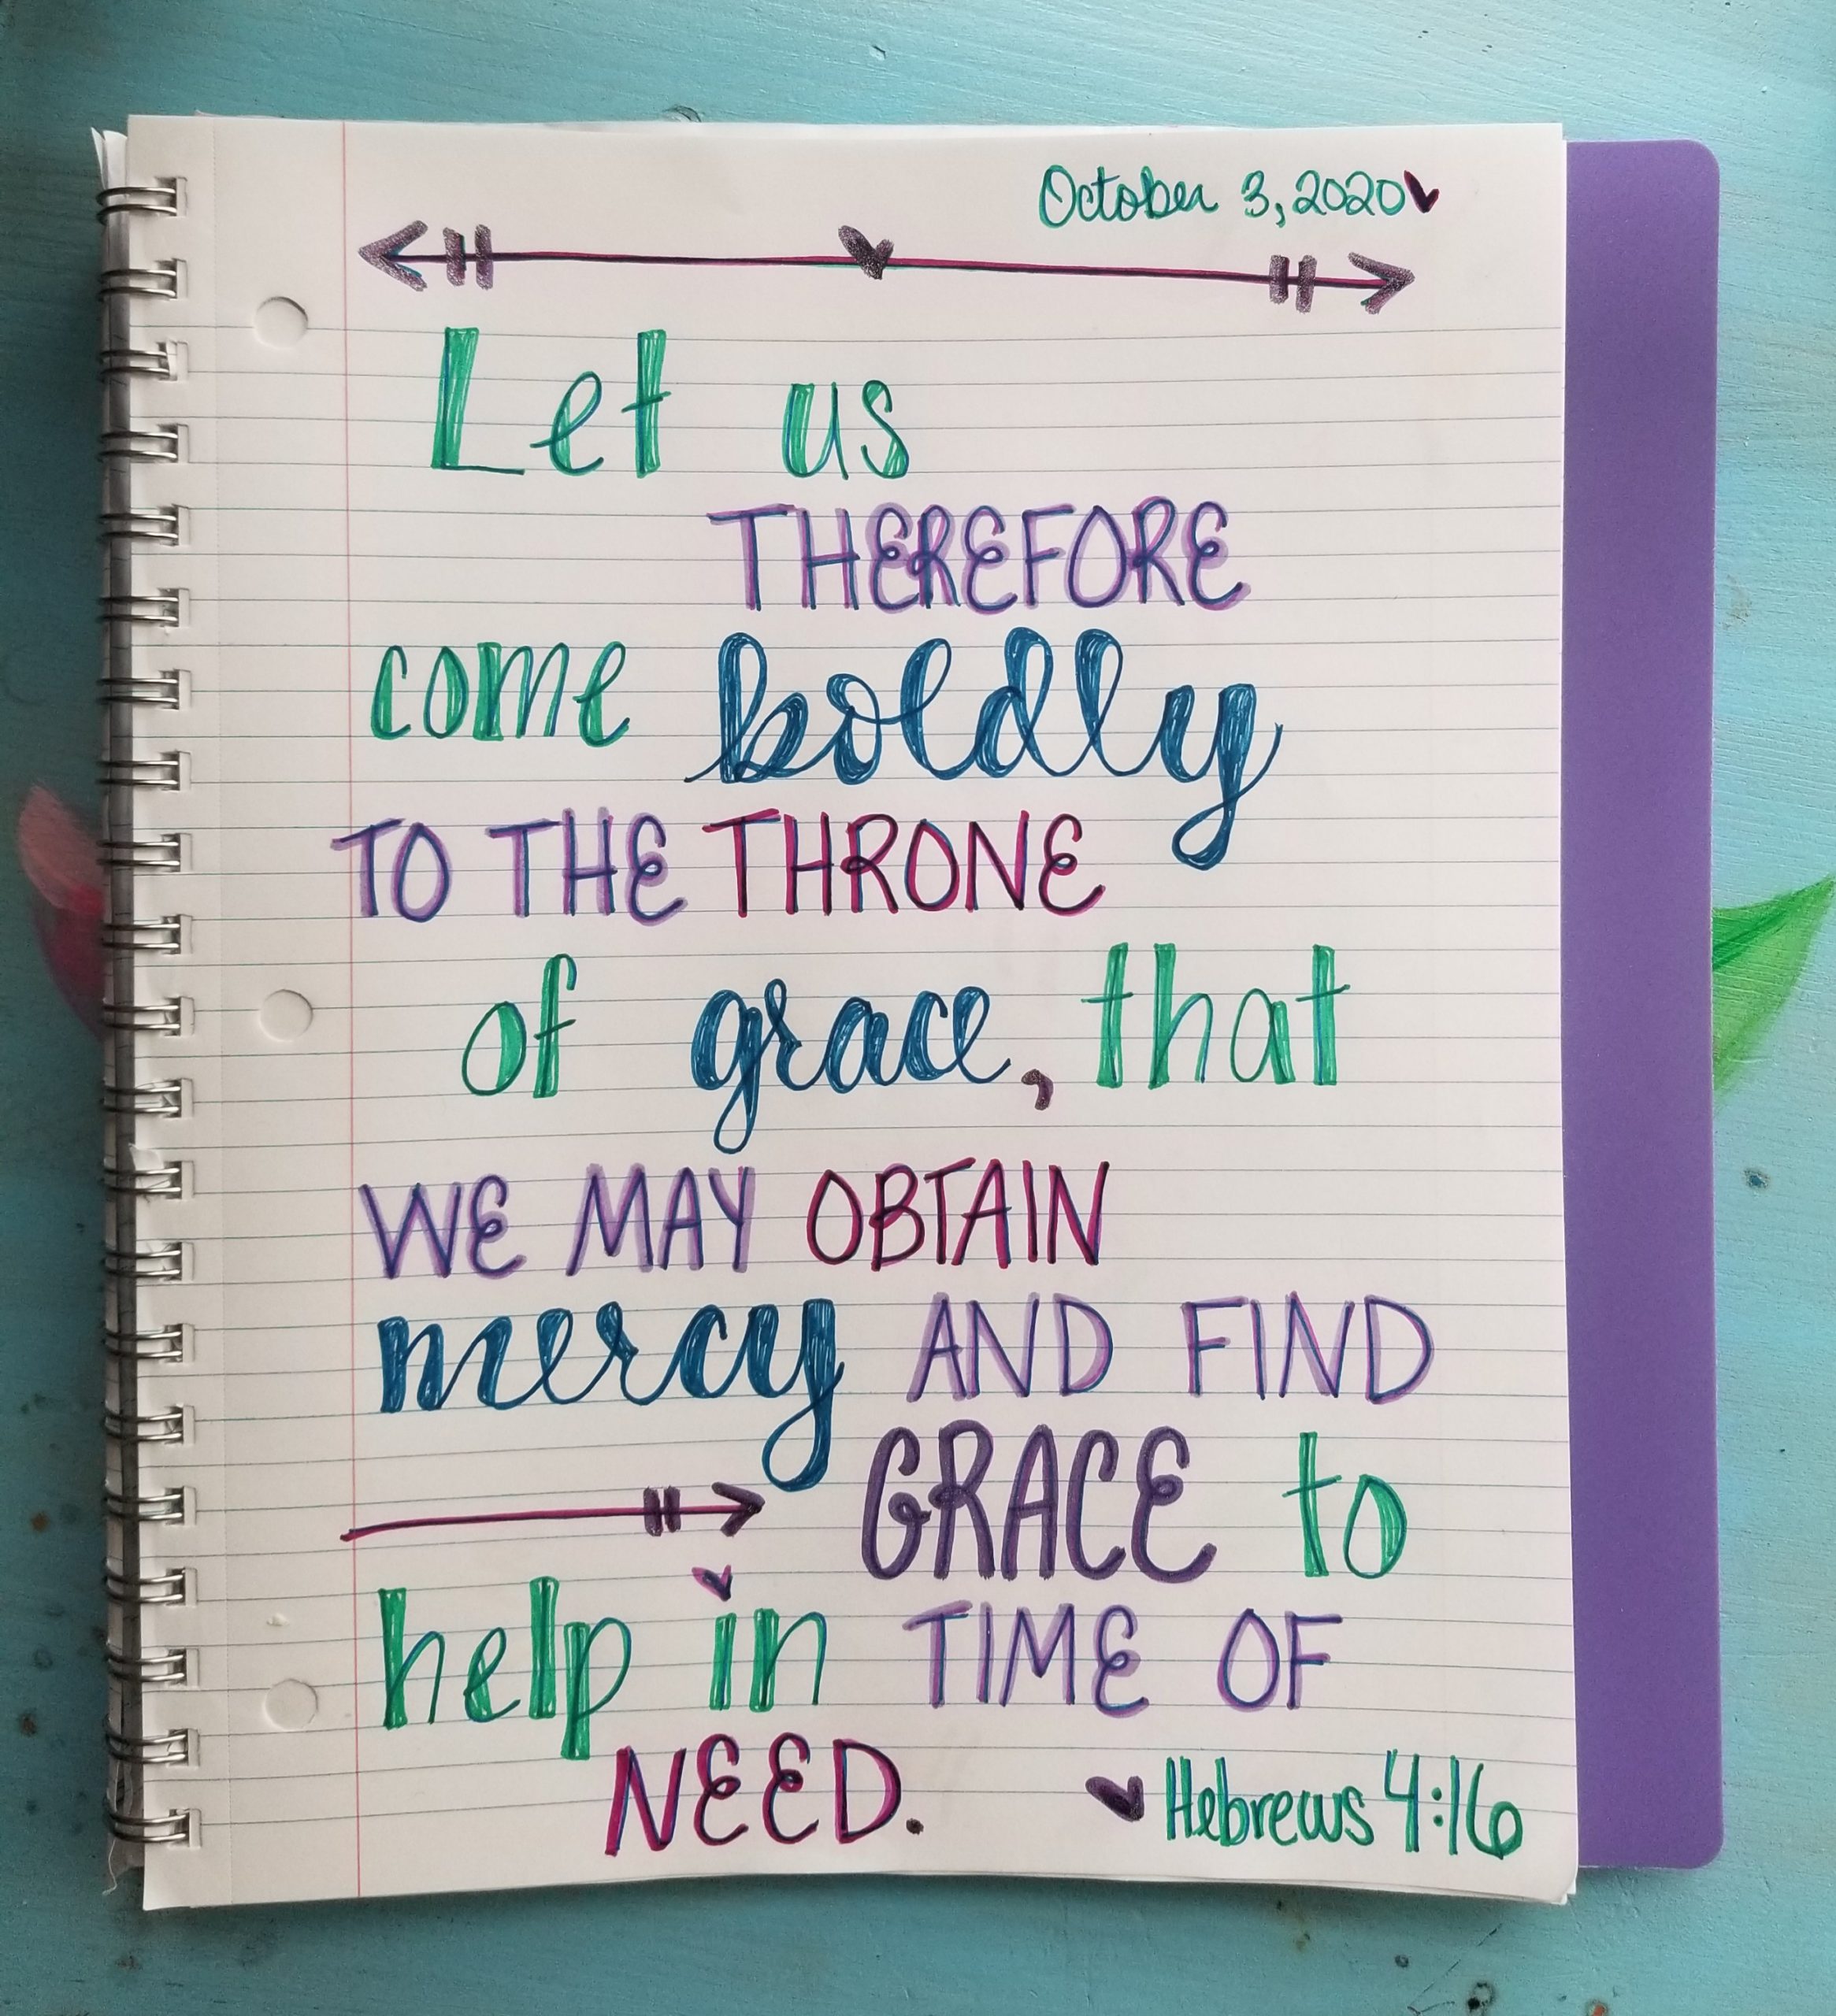 October 3, 2020
Let us
THEREFORE
come boldly
TO THE THRONE
of grace, that
WE MAY OBTAIN
mercy AND FIND
GRACE to
help in TIME OF
NEED.
Hebrews 4:16